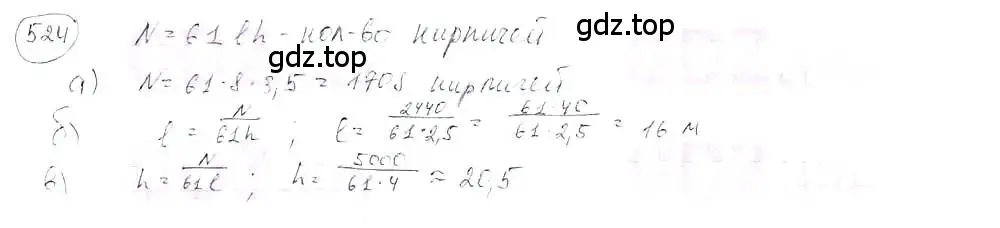 524 N = 61 l h - кол-во кирпичей
gdz.top
gdz.top
а) N = 61·8·3,5 = 1708 кирпичей
б) l = N/61h ; l = 2440/61·2,5 = 61·40/61·2,5 = 16 м
в) h = N/61l ; h = 5000/61·4 ≈ 20,5
gdz.top
gdz.top